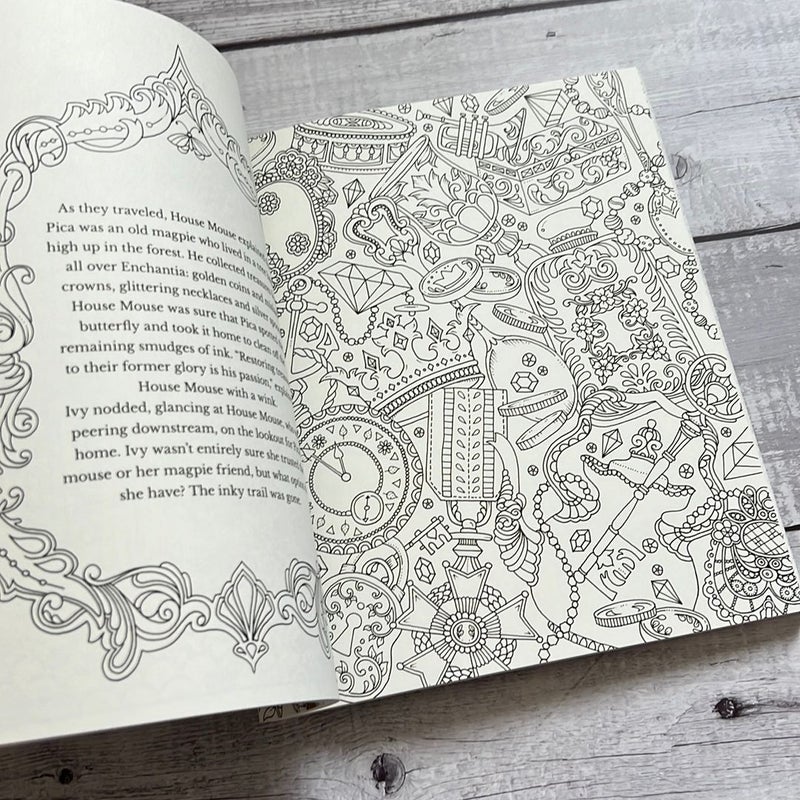 As they traveled, House Mouse
Pica was an old magpie who lived in a
high up in the forest. He collected
all over Enchantia: golden coins and
crowns, glittering necklaces and silver
House Mouse was sure that Pica
butterfly and took it home to clean
remaining smudges of ink. "Restoring
to their former glory is his passion,"
House Mouse with a wink.
Ivy nodded, glancing at House Mouse,
peering downstream, on the lookout for
home. Ivy wasn't entirely sure she
mouse or her magpie friend, but what
she have? The inky trail was gone.